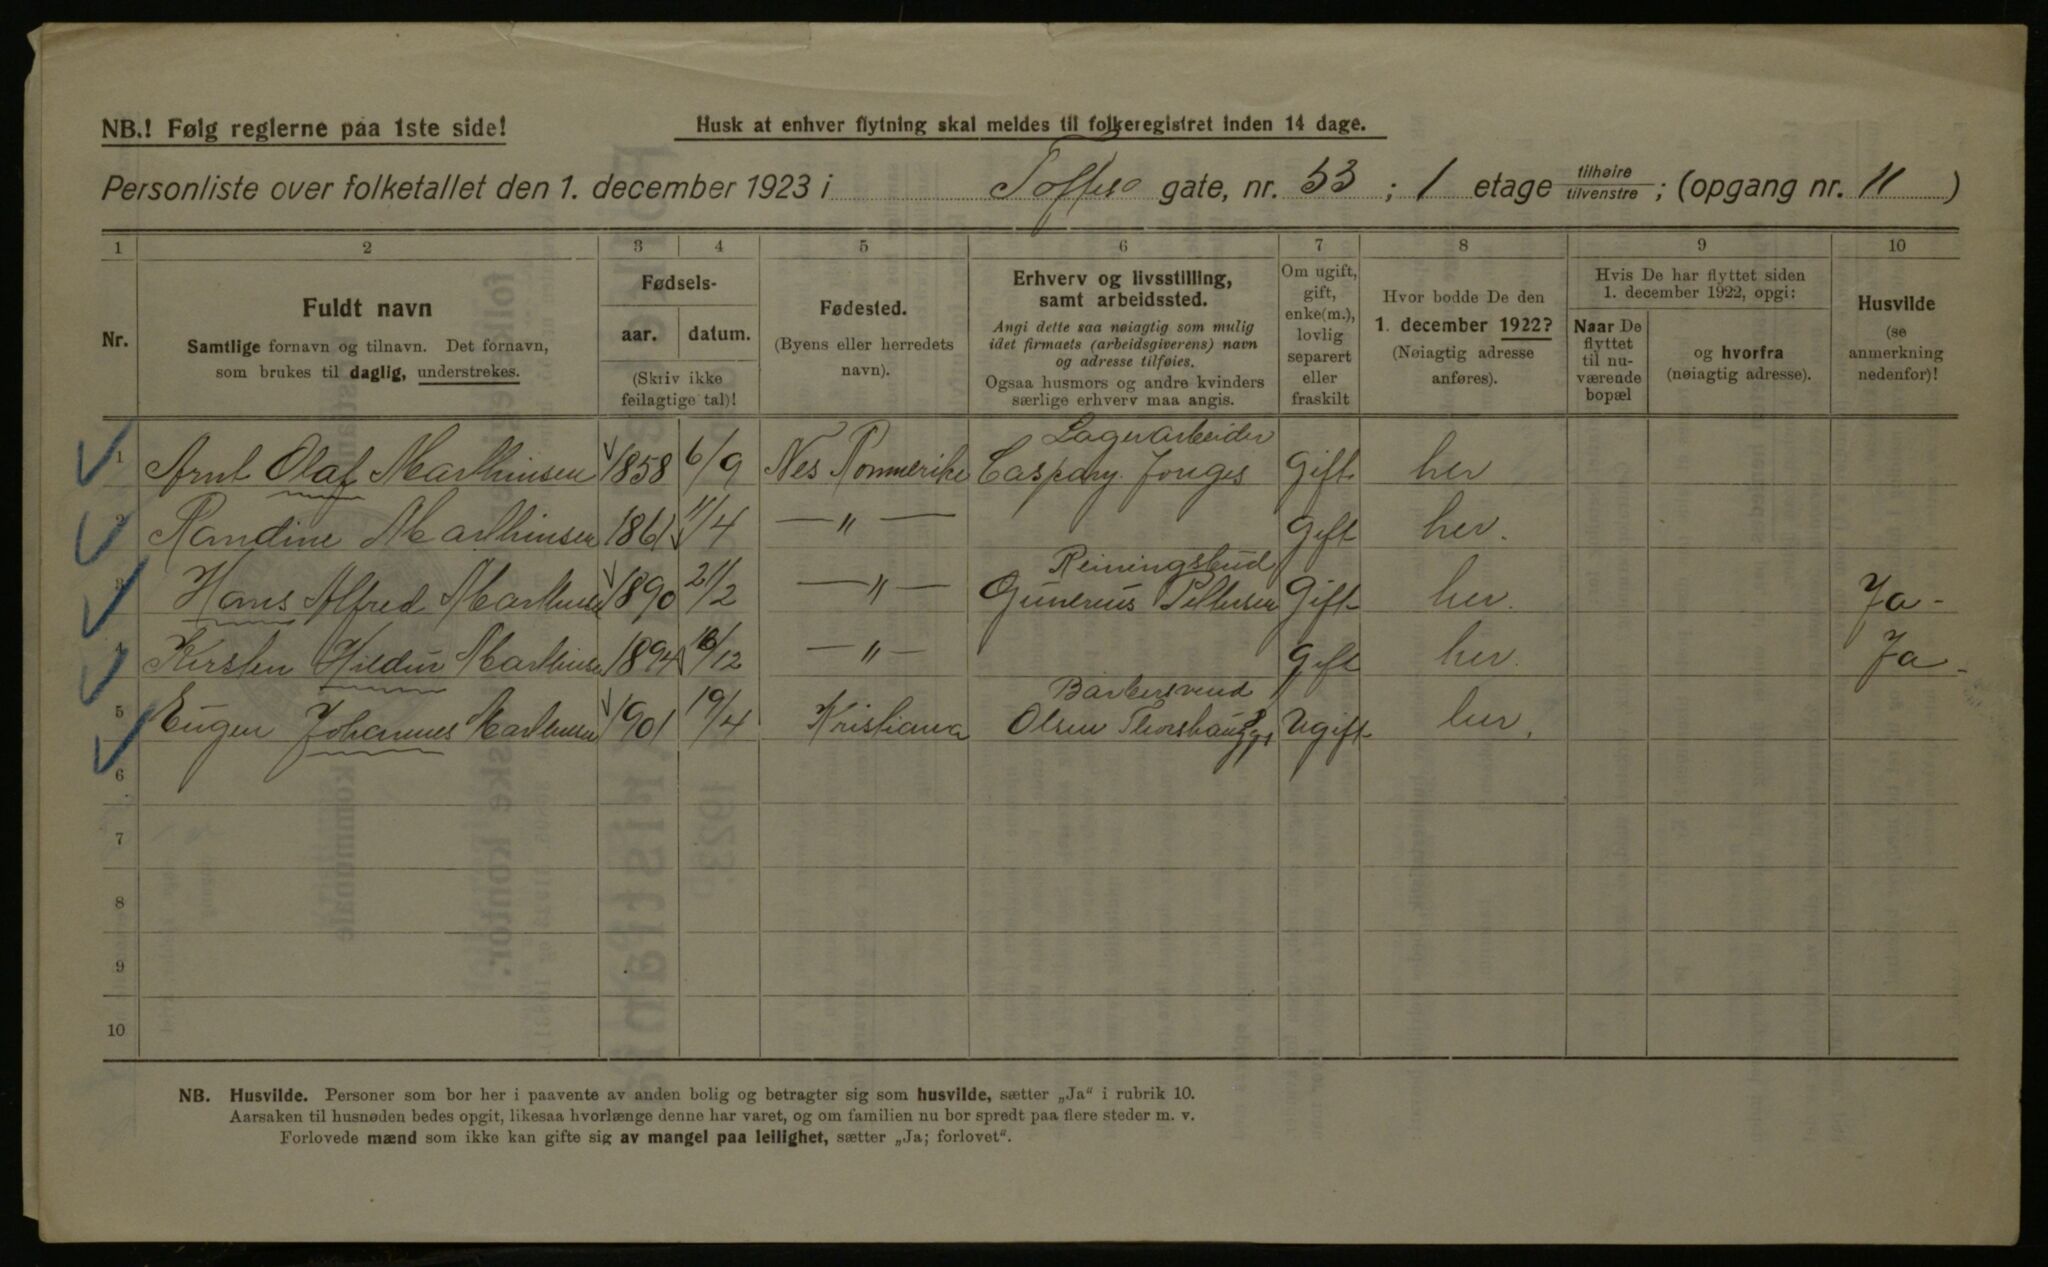 NB.! Følg reglerne paa 1ste side!
Husk at enhver flytning skal meldes til folkeregistret inden 14 dage.
Personliste over folketallet den 1. december 1923 i Toftes gate, nr. 53 ; 1 etage tilhøire tilvenstre ; (opgang nr. 11 )
1 2 3 4 5 6 7 8 9 10
Nr.
Fuldt navn
Samtlige fornavn og tilnavn. Det fornavn,
som brukes til daglig, understrekes.
Fødsels-
aar. datum.
(Skriv ikke
feilagtige tal)!
Fødested.
(Byens eller herredets
navn).
Erhverv og livsstilling,
samt arbeidssted.
Angi dette saa nøiagtig som mulig
idet firmaets (arbeidsgiverens) navn
og adresse tilføies.
Ogsaa husmors og andre kvinders
særlige erhverv maa angis.
Om ugift,
gift,
enke(m.),
lovlig
separert
eller
fraskilt
Hvor bodde De den
1. december 1922?
(Nøiagtig adresse
anføres).
Hvis De har flyttet siden
1. december 1922, opgi:
Naar De
flyttet
til nu-
værende
bopæl
og hvorfra
(nøiagtig adresse).
Husvilde
(se
anmerkning
nedenfor)!
Lagerarbeider
1 Arnt Olaf Marthinsen 1858 6/9 Nes Rommerike Caspary Gift her
2 Randine Marthinsen 1861 11/4 — " — Gift her.
Reiningsbud
3 Hans Alfred Marthinsen 1890 21/2 — " — Gunerius Pettersen Gift her. Ja -
4 Kirsten Hildur Marthinsen 1894 16/12 — " — Gift her. Ja -
Barbersvend
5 Eugen Johannes Marthinsen 1901 19/4 Kristiania Olsen Ugift her.
6
7
8
9
10
NB. Husvilde. Personer som bor her i paavente av anden bolig og betragter sig som husvilde, sætter „Ja“ i rubrik 10.
Aarsaken til husnøden bedes opgit, likesaa hvorlænge denne har varet, og om familien nu bor spredt paa flere steder m. v.
Forlovede mænd som ikke kan gifte sig av mangel paa leilighet, sætter „Ja; forlovet“.